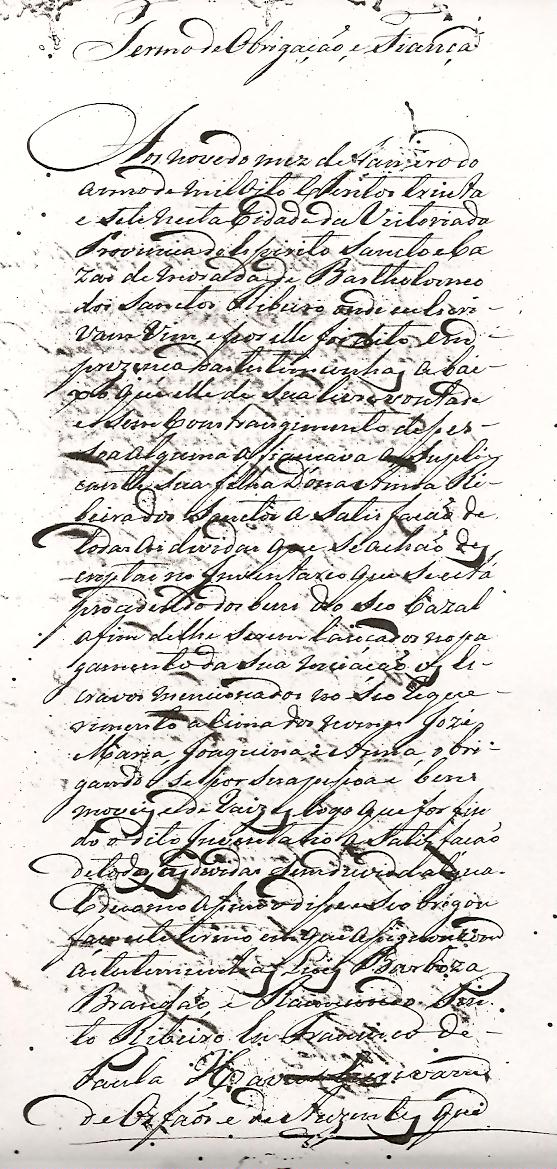 Termo de Obrigação, e Fiança
Aos nove do mez de Janeiro do
anno de mil oito Centos trinta
e sete nesta Cidade da Victoria da
Provincia do Espirito Sancto e Ca
zas de morada de Bartholomeo
dos Sanctos Ribeiro onde eu Escri-
vam Vim, e por elle foi dito em
prezença das testimunhas a bai-
xo que elle de sua livre vontade
e sem Constrangimento de pes-
soa alguma afiançava a Supli
cante sua filha Dona Anna Ri-
beira dos Sanctos a Satisfação de
todas as dividas que se achão des
criptas no Inventario que se está
procedendo dos bens do seo Cazal
afim de lhe serem lançados no pa
gamento da sua meiação os Es-
cravos mencionados no seo reque-
rimento a cima dos nomes José
Maria, Joaquina e Anna, obri-
gando se por sua pessoa e bens
moveis e de raiz logo que for fin
do o dito Inventario a Satisfação
de todas as dividas sem duvida algua.
E de como afirmou disse e se obrigou
faço este termo em que assignou com
as testemunhas Barboza
Brandão, e Pin
to Ribeiro Eu Francisco de
Paula Xavier Escrivam
de Orfaos e de Auzentes que